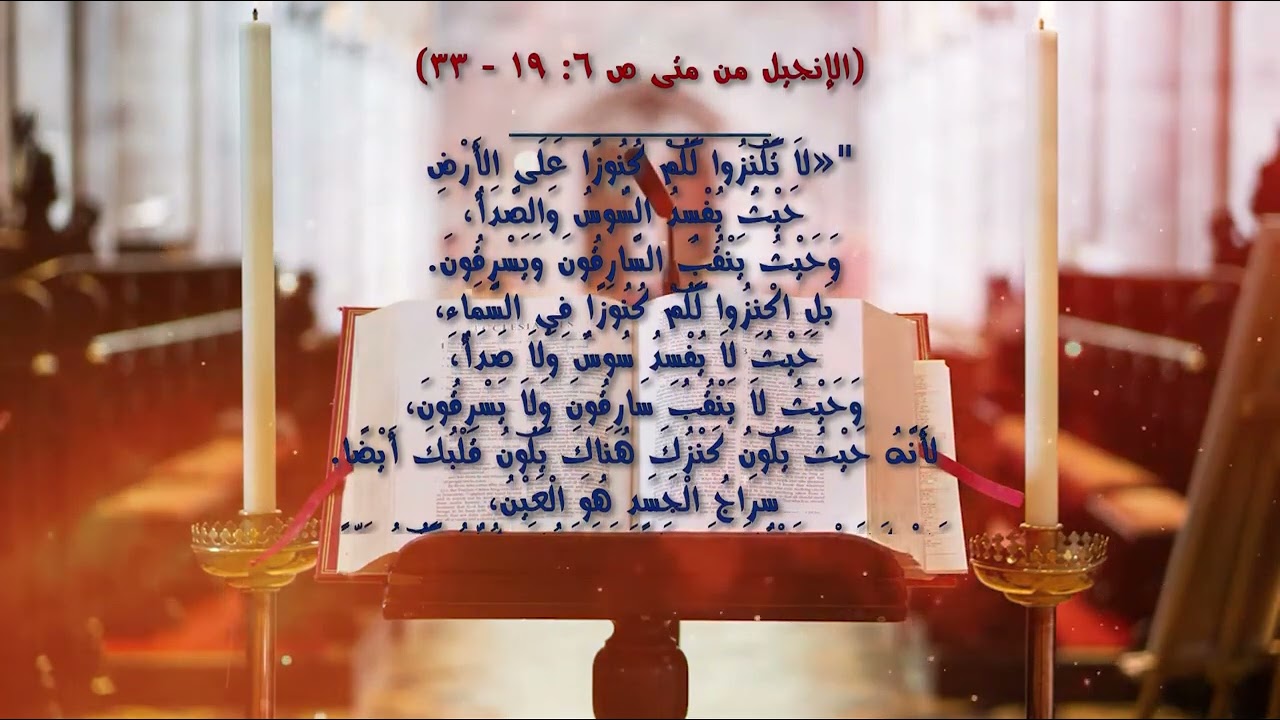 (الإنجيل من متى ص ٦: ١٩ - ٣٣)
"«لاَ تَكْنِزُوا لَكُمْ كُنُوزًا عَلَى الأَرْضِ
حَيْثُ يُفْسِدُ السُّوسُ وَالصَّدَأُ،
وَحَيْثُ يَنْقُبُ السَّارِقُونَ وَيَسْرِقُونَ.
بَلِ اكْنِزُوا لَكُمْ كُنُوزًا فِي السَّمَاءِ،
حَيْثُ لاَ يُفْسِدُ سُوسٌ وَلاَ صَدَأٌ،
وَحَيْثُ لاَ يَنْقُبُ سَارِقُونَ وَلاَ يَسْرِقُونَ،
لأَنَّهُ حَيْثُ يَكُونُ كَنْزُكَ هُنَاكَ يَكُونُ قَلْبُكَ أَيْضًا.
سِرَاجُ الْجَسَدِ هُوَ الْعَيْنُ،